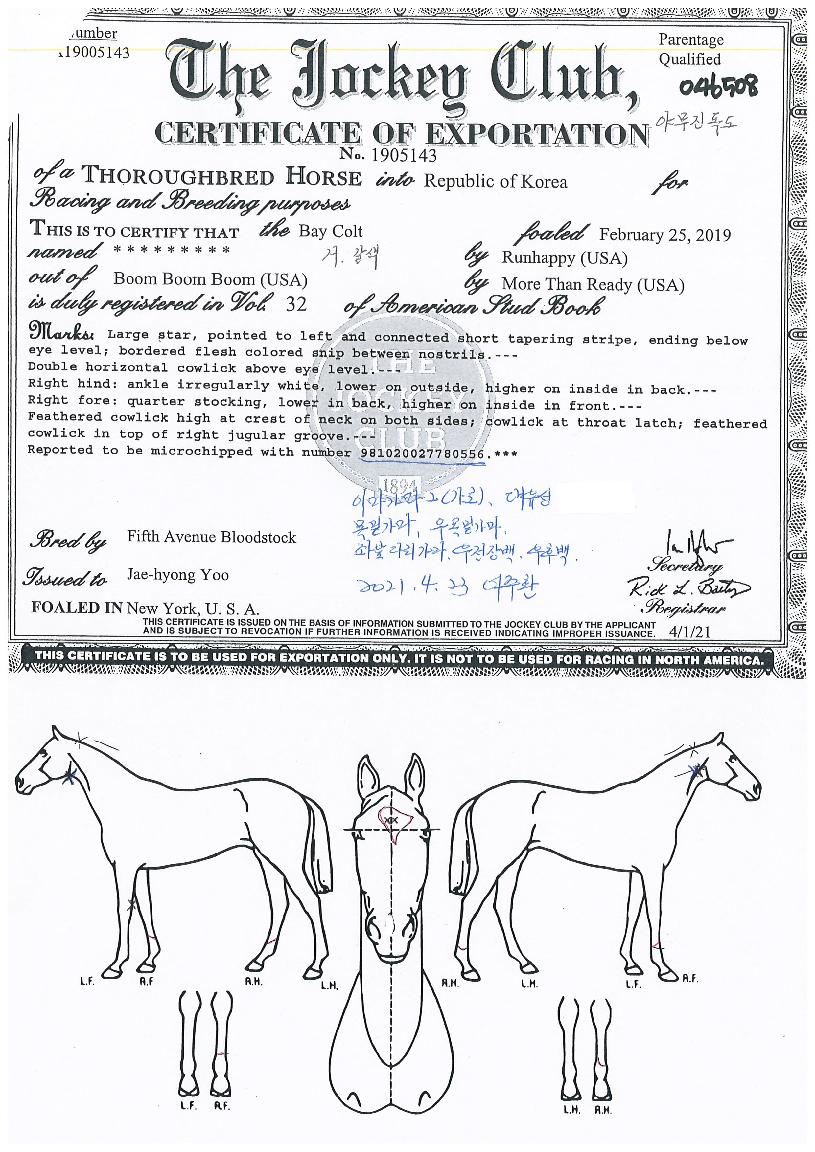 umber
19005143
Parentage
Qualified
046508
야무진독도
The Jockey Club,
CERTIFICATE OF EXPORTATION
No. 1905143
of a THOROUGHBRED HORSE into Republic of Korea for
Racing and Breeding purposes
THIS IS TO CERTIFY THAT the Bay Colt foaled February 25, 2019
거. 갈색
named * * * * * * * * * by Runhappy (USA)
out of Boom Boom Boom (USA) by More Than Ready (USA)
is duly registered in Vol. 32 of American Stud Book
Marks: Large star, pointed to left and connected short tapering stripe, ending below
eye level; bordered flesh colored snip between nostrils.---
Double horizontal cowlick above eye level.---
Right hind: ankle irregularly white, lower on outside, higher on inside in back.---
Right fore: quarter stocking, lower in back, higher on inside in front.---
Feathered cowlick high at crest of neck on both sides; cowlick at throat latch; feathered
cowlick in top of right jugular groove.---
Reported to be microchipped with number 981020027780556.***
THE
JOCKEY
CLUB
1894
이마가마2(가로), 대유성
목필가마, 우목밑가마,
좌앞다리가마, 우전장백, 우후백.
2021. 4. 23 이주환
Bred by Fifth Avenue Bloodstock
Issued to Jae-hyong Yoo
Secretary
Rick L. Bailey
Registrar
FOALED IN New York, U. S. A.
THIS CERTIFICATE IS ISSUED ON THE BASIS OF INFORMATION SUBMITTED TO THE JOCKEY CLUB BY THE APPLICANT
AND IS SUBJECT TO REVOCATION IF FURTHER INFORMATION IS RECEIVED INDICATING IMPROPER ISSUANCE. 4/1/21
THIS CERTIFICATE IS TO BE USED FOR EXPORTATION ONLY. IT IS NOT TO BE USED FOR RACING IN NORTH AMERICA.
L.F. R.F R.H. L.H. R.H. L.H. L.F. R.F.
L.F. R.F. L.H. R.H.